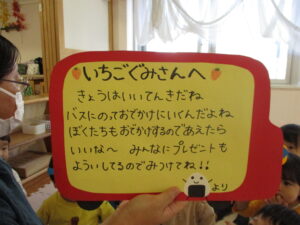 いちごぐみさんへ
きょうはいいてんきだね
バスにのっておでかけにいくんだよね
ぼくたちもおでかけするのであえたら
いいな〜 みんなにプレゼントも
よういしてるのでみつけてね!!
より